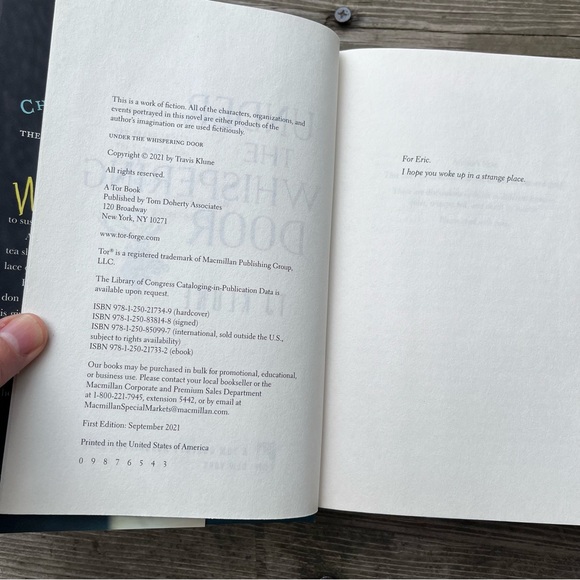 This is a work of fiction. All of the characters, organizations, and
events portrayed in this novel are either products of the
author's imagination or are used fictitiously.
UNDER THE WHISPERING DOOR
Copyright © 2021 by Travis Klune
All rights reserved.
A Tor Book
Published by Tom Doherty Associates
120 Broadway
New York, NY 10271
www.tor-forge.com
Tor® is a registered trademark of Macmillan Publishing Group,
LLC.
The Library of Congress Cataloging-in-Publication Data is
available upon request.
ISBN 978-1-250-21734-9 (hardcover)
ISBN 978-1-250-83814-8 (signed)
ISBN 978-1-250-85099-7 (international, sold outside the U.S.,
subject to rights availability)
ISBN 978-1-250-21733-2 (ebook)
Our books may be purchased in bulk for promotional, educational,
or business use. Please contact your local bookseller or the
Macmillan Corporate and Premium Sales Department
at 1-800-221-7945, extension 5442, or by email at
MacmillanSpecialMarkets@macmillan.com.
First Edition: September 2021
Printed in the United States of America
0 9 8 7 6 5 4 3
For Eric.
I hope you woke up in a strange place.